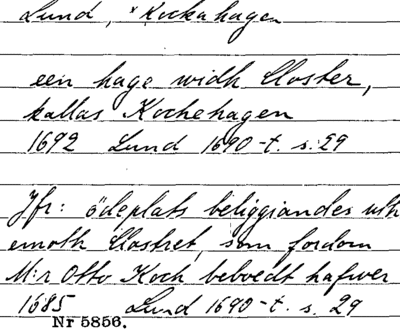 Lund, *Kockahagen
een hage widh Closter,
kallas Kochehagen
1692 Lund 1690-t. s. 29
Jfr: ödeplats beliggiandes uth
emoth Clostret, som fordom
M:r Otto Koch beboedt hafwer
1685 Lund 1690-t. s. 29
Nr 5856.